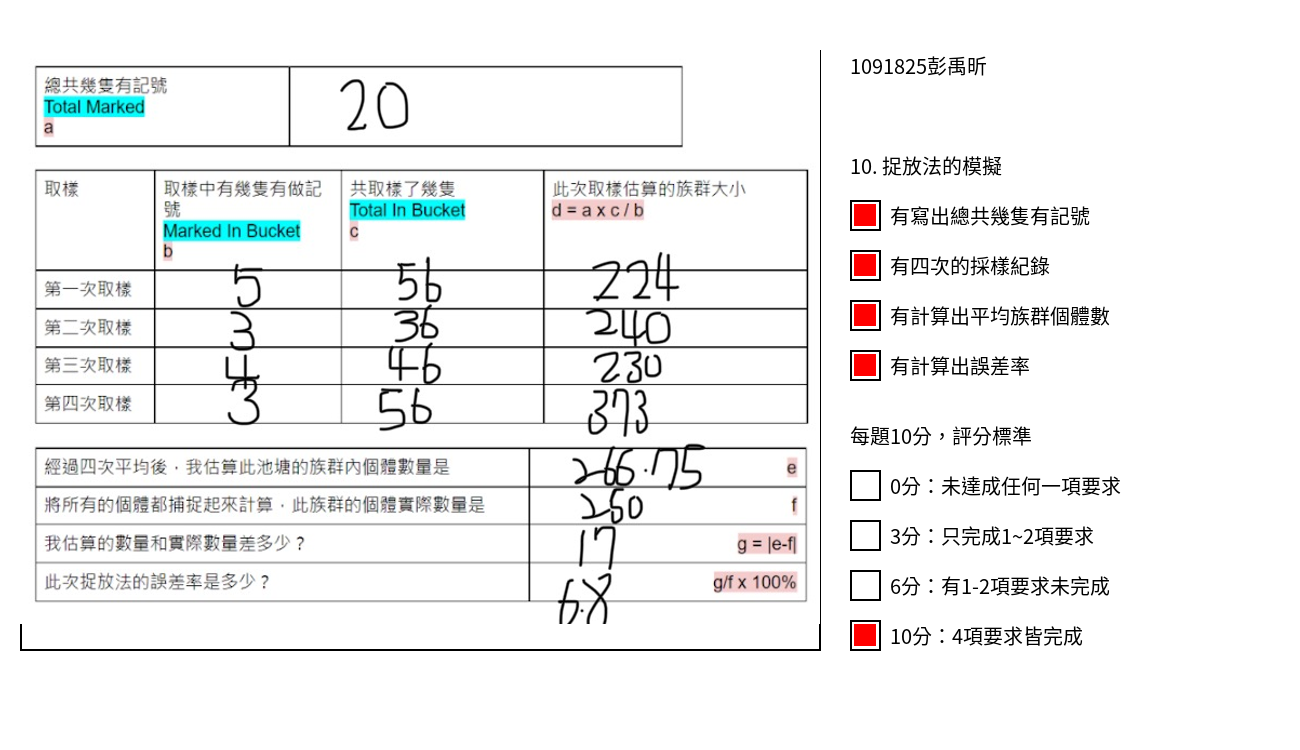 總共幾隻有記號
Total Marked
a
20
取樣
取樣中有幾隻有做記
號
Marked In Bucket
b
共取樣了幾隻
Total In Bucket
c
此次取樣估算的族群大小
d = a x c / b
第一次取樣 5 56 224
第二次取樣 3 36 240
第三次取樣 4 46 230
第四次取樣 3 56 373
經過四次平均後，我估算此池塘的族群內個體數量是 266.75 e
將所有的個體都捕捉起來計算，此族群的個體實際數量是 250 f
我估算的數量和實際數量差多少？ 17 g = |e-f|
此次捉放法的誤差率是多少？ 6.8 g/f x 100%
1091825彭禹昕
10. 捉放法的模擬
有寫出總共幾隻有記號
有四次的採樣紀錄
有計算出平均族群個體數
有計算出誤差率
每題10分，評分標準
0分：未達成任何一項要求
3分：只完成1~2項要求
6分：有1-2項要求未完成
10分：4項要求皆完成